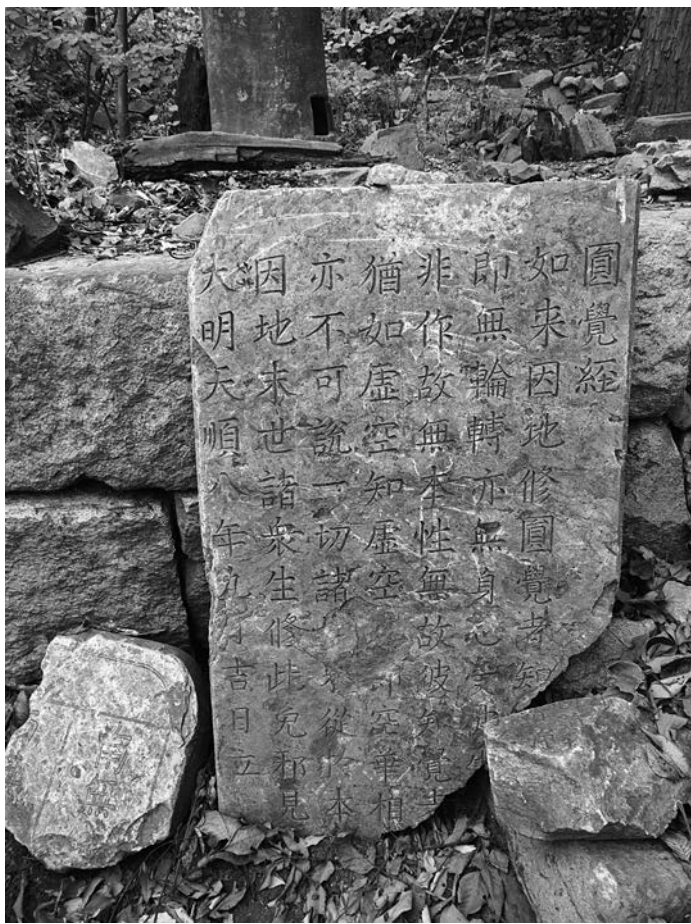 圓覺経
如来因地修圓覺者知
即無輪轉亦無身心受
非作故無本性無故彼知覺者
猶如虛空知虛空 即空華相
亦不可說一切諸 從於本
因地末世諸衆生修此免邪見
大明天順八年九月吉日立